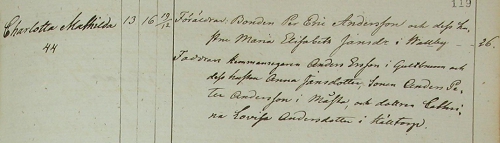 119
Charlotta Mathilda 13 16 19/12 Föräldrar Bonden Per Eric Andersson och dess hu-
44 stru Maria Elisabeth Jansdr i Wallby 26.
Faddrar Hemmansegaren Anders Ersson i och
dess hustru Anna Jansdotter, Sonen Anders Pe-
ter Andersson i Måsta, och dottren Cathri-
na Lovisa Andersdotter i Källtorp.